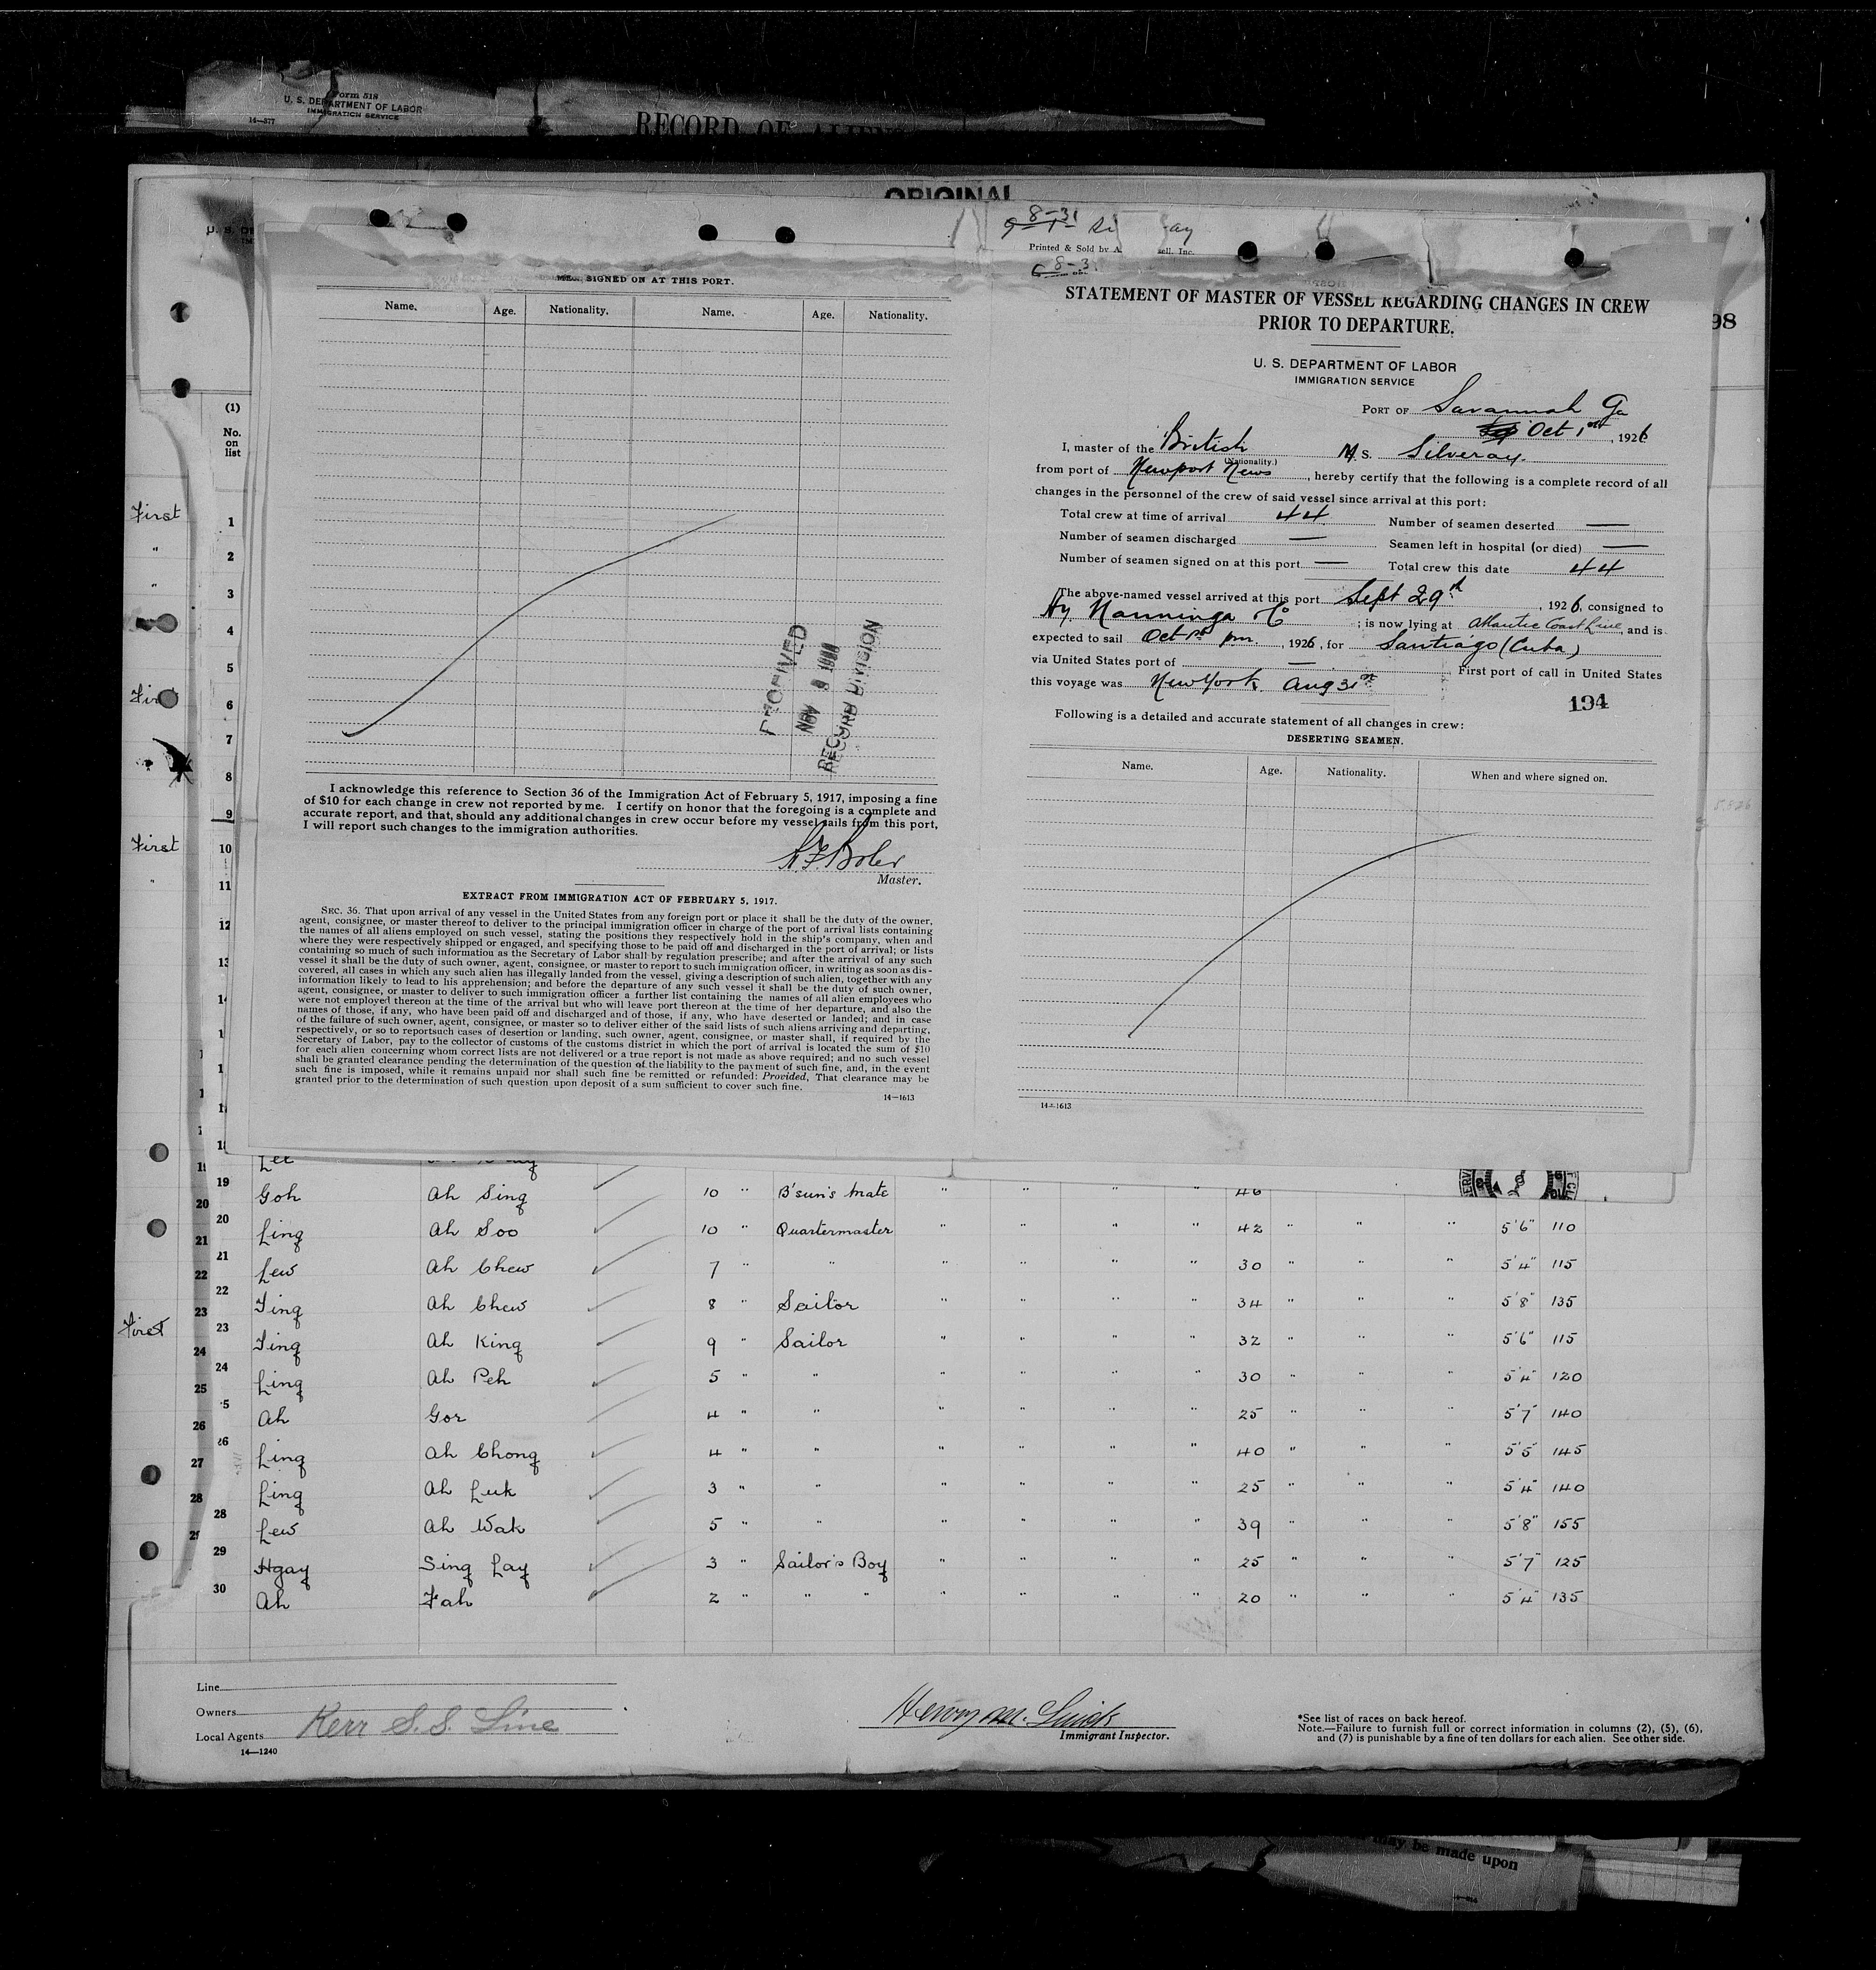 Form 518
U. S. DEPARTMENT OF LABOR
IMMIGRATION SERVICE
14—577
RECORD OF ALIEN
ORIGINAL
98
(1)
No.
on
list
First
1
"
2
"
3
4
5
6
7
8
9
First
10
"
11
12
SIGNED ON AT THIS PORT.
Name. Age. Nationality. Name. Age. Nationality.
NOV
RECORD DIVISION
I acknowledge this reference to Section 36 of the Immigration Act of February 5, 1917, imposing a fine
of $10 for each change in crew not reported by me. I certify on honor that the foregoing is a complete and
accurate report, and that, should any additional changes in crew occur before my vessel sails from this port,
I will report such changes to the immigration authorities.
Master.
EXTRACT FROM IMMIGRATION ACT OF FEBRUARY 5, 1917.
SEC. 36. That upon arrival of any vessel in the United States from any foreign port or place it shall be the duty of the owner,
agent, consignee, or master thereof to deliver to the principal immigration officer in charge of the port of arrival lists containing
the names of all aliens employed on such vessel, stating the positions they respectively hold in the ship's company, when and
where they were respectively shipped or engaged, and specifying those to be paid off and discharged in the port of arrival; or lists
containing so much of such information as the Secretary of Labor shall by regulation prescribe; and after the arrival of any such
vessel it shall be the duty of such owner, agent, consignee, or master to report to such immigration officer, in writing as soon as dis-
covered, all cases in which any such alien has illegally landed from the vessel, giving a description of such alien, together with any
information likely to lead to his apprehension; and before the departure of any such vessel it shall be the duty of such owner,
agent, consignee, or master to deliver to such immigration officer a further list containing the names of all alien employees who
were not employed thereon at the time of the arrival but who will leave port thereon at the time of her departure, and also the
names of those, if any, who have been paid off and discharged and of those, if any, who have deserted or landed; and in case
of the failure of such owner, agent, consignee, or master so to deliver either of the said lists of such aliens arriving and departing,
respectively, or so to reportsuch cases of desertion or landing, such owner, agent, consignee, or master shall, if required by the
Secretary of Labor, pay to the collector of customs of the customs district in which the port of arrival is located the sum of $10
for each alien concerning whom correct lists are not delivered or a true report is not made as above required; and no such vessel
shall be granted clearance pending the determination of the question of the liability to the payment of such fine, and, in the event
such fine is imposed, while it remains unpaid nor shall such fine be remitted or refunded: Provided, That clearance may be
granted prior to the determination of such question upon deposit of a sum sufficient to cover such fine.
14—1613
8-31
Printed & Sold by A. ell, Inc.
STATEMENT OF MASTER OF VESSEL REGARDING CHANGES IN CREW
PRIOR TO DEPARTURE.
U. S. DEPARTMENT OF LABOR
IMMIGRATION SERVICE
PORT OF Savannah Ga
Oct 1st, 1926
I, master of the British M. S. Silveray
(Nationality.)
from port of Newport News, hereby certify that the following is a complete record of all
changes in the personnel of the crew of said vessel since arrival at this port:
Total crew at time of arrival 44 Number of seamen deserted —
Number of seamen discharged — Seamen left in hospital (or died) —
Number of seamen signed on at this port — Total crew this date 44
The above-named vessel arrived at this port Sept 29th, 1926, consigned to
Hy. Nanninga Co; is now lying at Atlantic Coast Line, and is
expected to sail Oct 1st pm, 1926, for Santiago (Cuba)
via United States port of —. First port of call in United States
this voyage was New York Aug 31st
194
Following is a detailed and accurate statement of all changes in crew:
DESERTING SEAMEN.
Name. Age. Nationality. When and where signed on.
14—1613
Lee
19 20 Goh Ah Sing 10 " B'sun's Mate " " " " 46
20 21 Ling Ah Soo 10 " Quartermaster " " " " 42 " " " 5'6" 110
21 22 Lew Ah Chew 7 " " " " " " 30 " " " 5'4" 115
22 23 Ting Ah Chew 8 " Sailor " " " " 34 " " " 5'8" 135
First 23 24 Ting Ah King 9 " Sailor " " " " 32 " " " 5'6" 115
24 25 Ling Ah Peh 5 " " " " " " 30 " " " 5'4" 120
5 26 Ah Gor 4 " " " " " " 25 " " " 5'7" 140
26 27 Ling Ah Chong 4 " " " " " " 40 " " " 5'5" 145
28 Ling Ah Luk 3 " " " " " " 25 " " " 5'4" 140
28 29 Lew Ah Wak 5 " " " " " " 39 " " " 5'8" 155
29 Hgay Sing Lay 3 " Sailor's Boy " " " " 25 " " " 5'7" 125
30 Ah Fah 2 " " " " " " " 20 " " " 5'4" 135
Line
Owners
Local Agents Kerr S.S. Line
14—1240
Immigrant Inspector.
*See list of races on back hereof.
Note.—Failure to furnish full or correct information in columns (2), (5), (6),
and (7) is punishable by a fine of ten dollars for each alien. See other side.
may be made upon